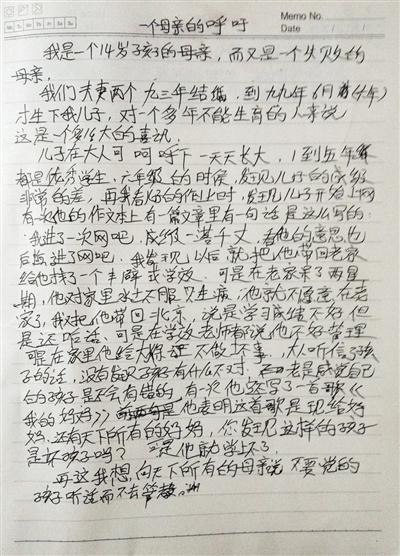 一个母亲的呼吁
Memo No.
Date / /
我是一个14岁孩子的母亲，而又是一个失败的
母亲，
我们夫妻两个九三年结婚，到九九年6月
才生下我儿子，对一个多年不能生育的人来说
这是一个多么大的喜讯．
儿子在大人呵呵护下一天天长大，1到五年级
都是优秀学生，六年级的时候，发现儿子的成绩
非常的差，再我看他的作业时，发现儿子开始上网
有次他的作文本上有一篇文章里有一句话是这么写的：
我进了一次网吧，成绩一落千丈，看他的意思也
后悔进了网吧，我发现以后就把他带回老家
给他找了一个学校，可是在老家呆了两星
期，他对家里水土不服只生病，他就不愿意在老
家了，我又把他带回北京，说是学习成绩不好但
是还可是在学校老师都说他不好管理
可是在家里他给大人不做坏事，大人听信了孩
子的话，没有发现子有什么不对，老是感觉自己
的孩子是不会有错的，有次他还写了一首歌《
我的妈妈》他表明这首歌是现给妈
妈，还有天下所有的妈妈，你发现这样的孩子
是坏孩子吗？于是他就学坏了．
再这我想，向天下所有的母亲说不要觉的
孩子听话而不去管教。